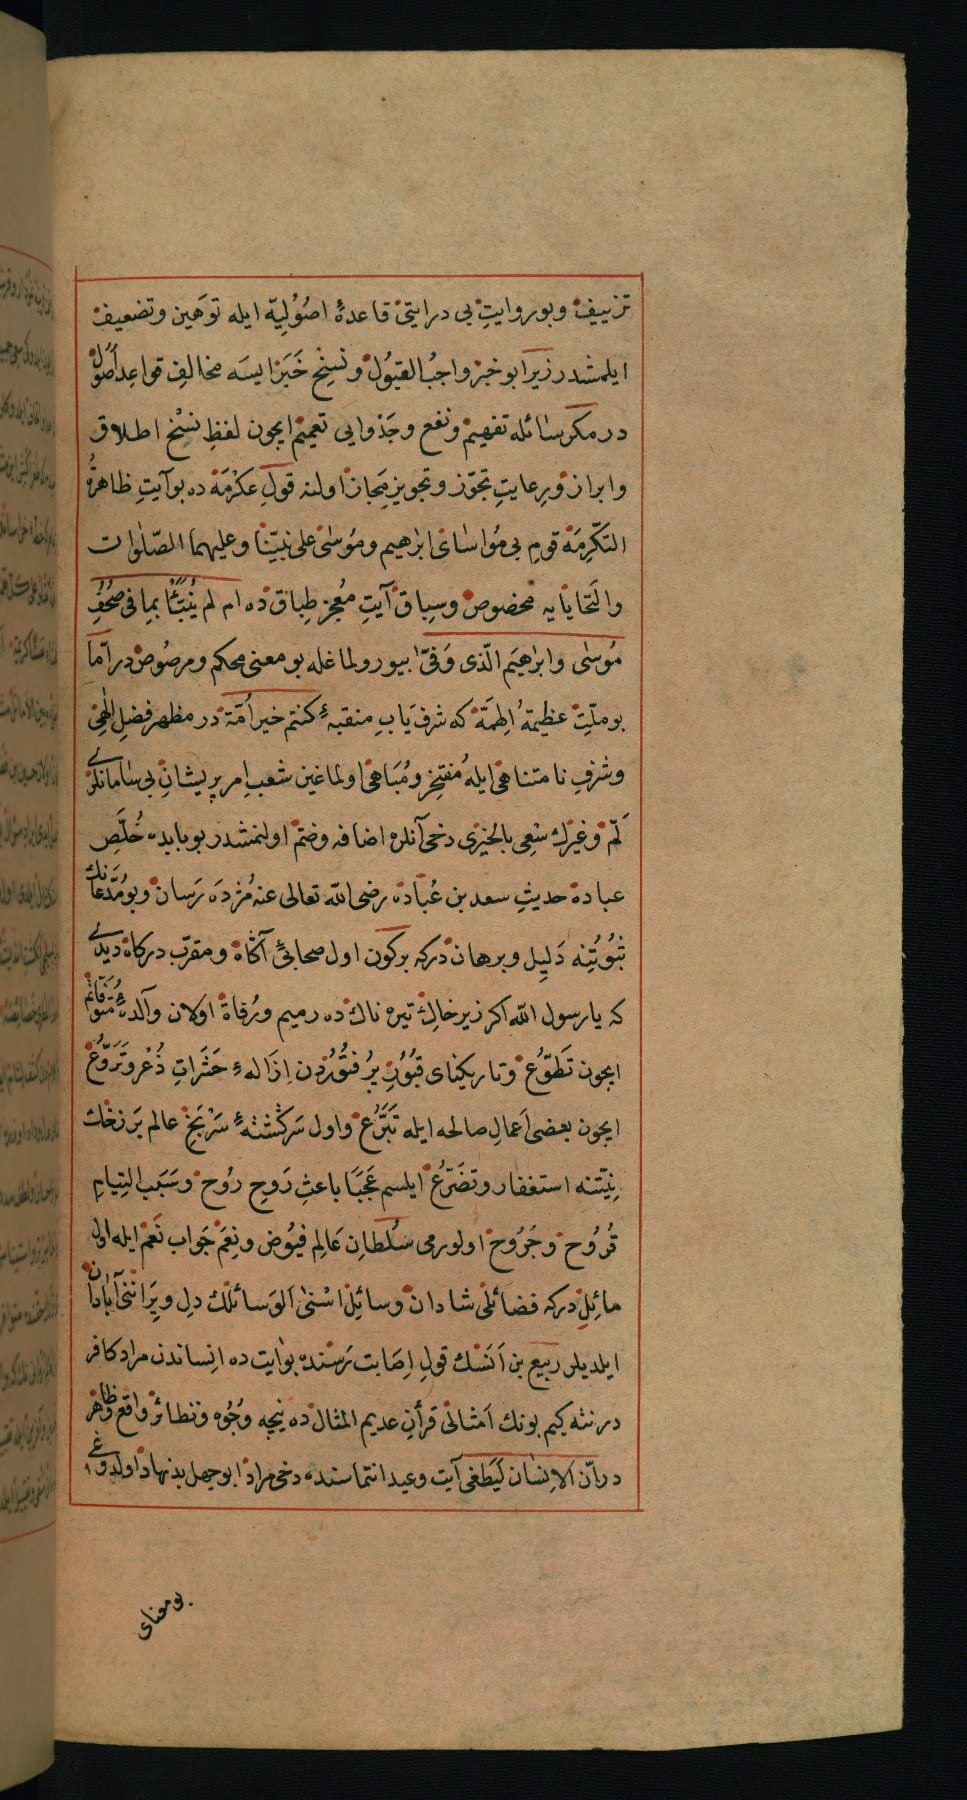 تزییف و بو روایتِ بی درایتی قاعدهٔ اصُولیّه ایله توهین و تضعیف
ایلمشدر زیرا بو خبر واجبُ القبُول و نسخِ خَبَر ایسه مخالفِ قواعدِ اُصُول
در مکر سائله تفهیم و نفع و جَدْوایی تعمیم ایچون لفظِ نسْخ اطلاق
و ابراز و برعایتِ تجوّز و تجویزِ مَجاز اولنه قولِ عکرمَه ده بو آیتِ ظاهرةُ
التکرمَه قومِ بی مُواسٰای ابرٰهیم و مُوسٰی علی نبیّنا و علیهما الصّلوات
والتحایایه مخصوص و سِباق آیتِ مُعجز طِباق ده ام لم یُنَبَّأ بما فی صُحُفِ
مُوسٰی و ابرٰهیم الّذی وَفّیٰ بیورولماغله بو معنی محکم و مرصُوص در امّا
بو ملّتِ عظیمة که شرف یَابِ منقبهٔ کنتم خیر اُمّة در مظهر فضلِ الٰهی
و شرفِ نامتناهی ایله مُفتخِر و مُبَاهی اولماغین شعبِ امر پریشانِ بی سامانلرنی
لَمّ و غیرك سَعی بالخیری دخی آنلره اضافه و ضمّ اولنمشدر بو بابده خُلّصِ
عباده حدیثِ سعد بن عُبَاده رضی الله تعالی عنه مُژدَه رَسان و بو مُدّعانك
ثبُوتِنه دَلیل و برهان درکه بر کون اول صحابیٔ آکاه و مقرّب درکاه دیدی
که یا رسول الله اکر زیر خاكِ تیره ناك ده رمیم و رُفاة اولان والدهٔ مُتوفّاتم
ایچون تَطَوُّع و تاریکنای قبُورِ پُر فتُوردن اِزَالهء حَشَراتِ ذُعْر و تَرَوُّع
ایچون بعضی اَعمالِ صالحه ایله تَبَرُّع و اول سَرکشتهٔ سَرْبَخِ عالم بَرزخك
نِیّتنه استغفار و تضَرُّع ایلسم عَجَبَا باعثِ رَوحِ رُوح و سَبَبِ التیامِ
قُرُوح و جَرُوح اولورمی سُلطانِ عَالِم فیُوض و نِعَم جَواب نَعَم ایله اول
مائِلِ درکه فضائلی شادان و وسائِل اسْنیٰ الوَسائلك دِل ویرَاننی آبادان
ایلدیلر ربیع بن اَنَسْك قولِ اِصَابت رَسنده بو آیت ده اِنساندن مراد کافر
در نته کیم بونك اَمثالی قرآنِ عدیم المثال ده نیچه وُجُوه و نظائر واقع و ظاهر
در انّ الاِنسَان لَیَطغی آیت وعید انتماسنده دخی مراد ابو جهل بدنهاد اولدوغی
بو معنای